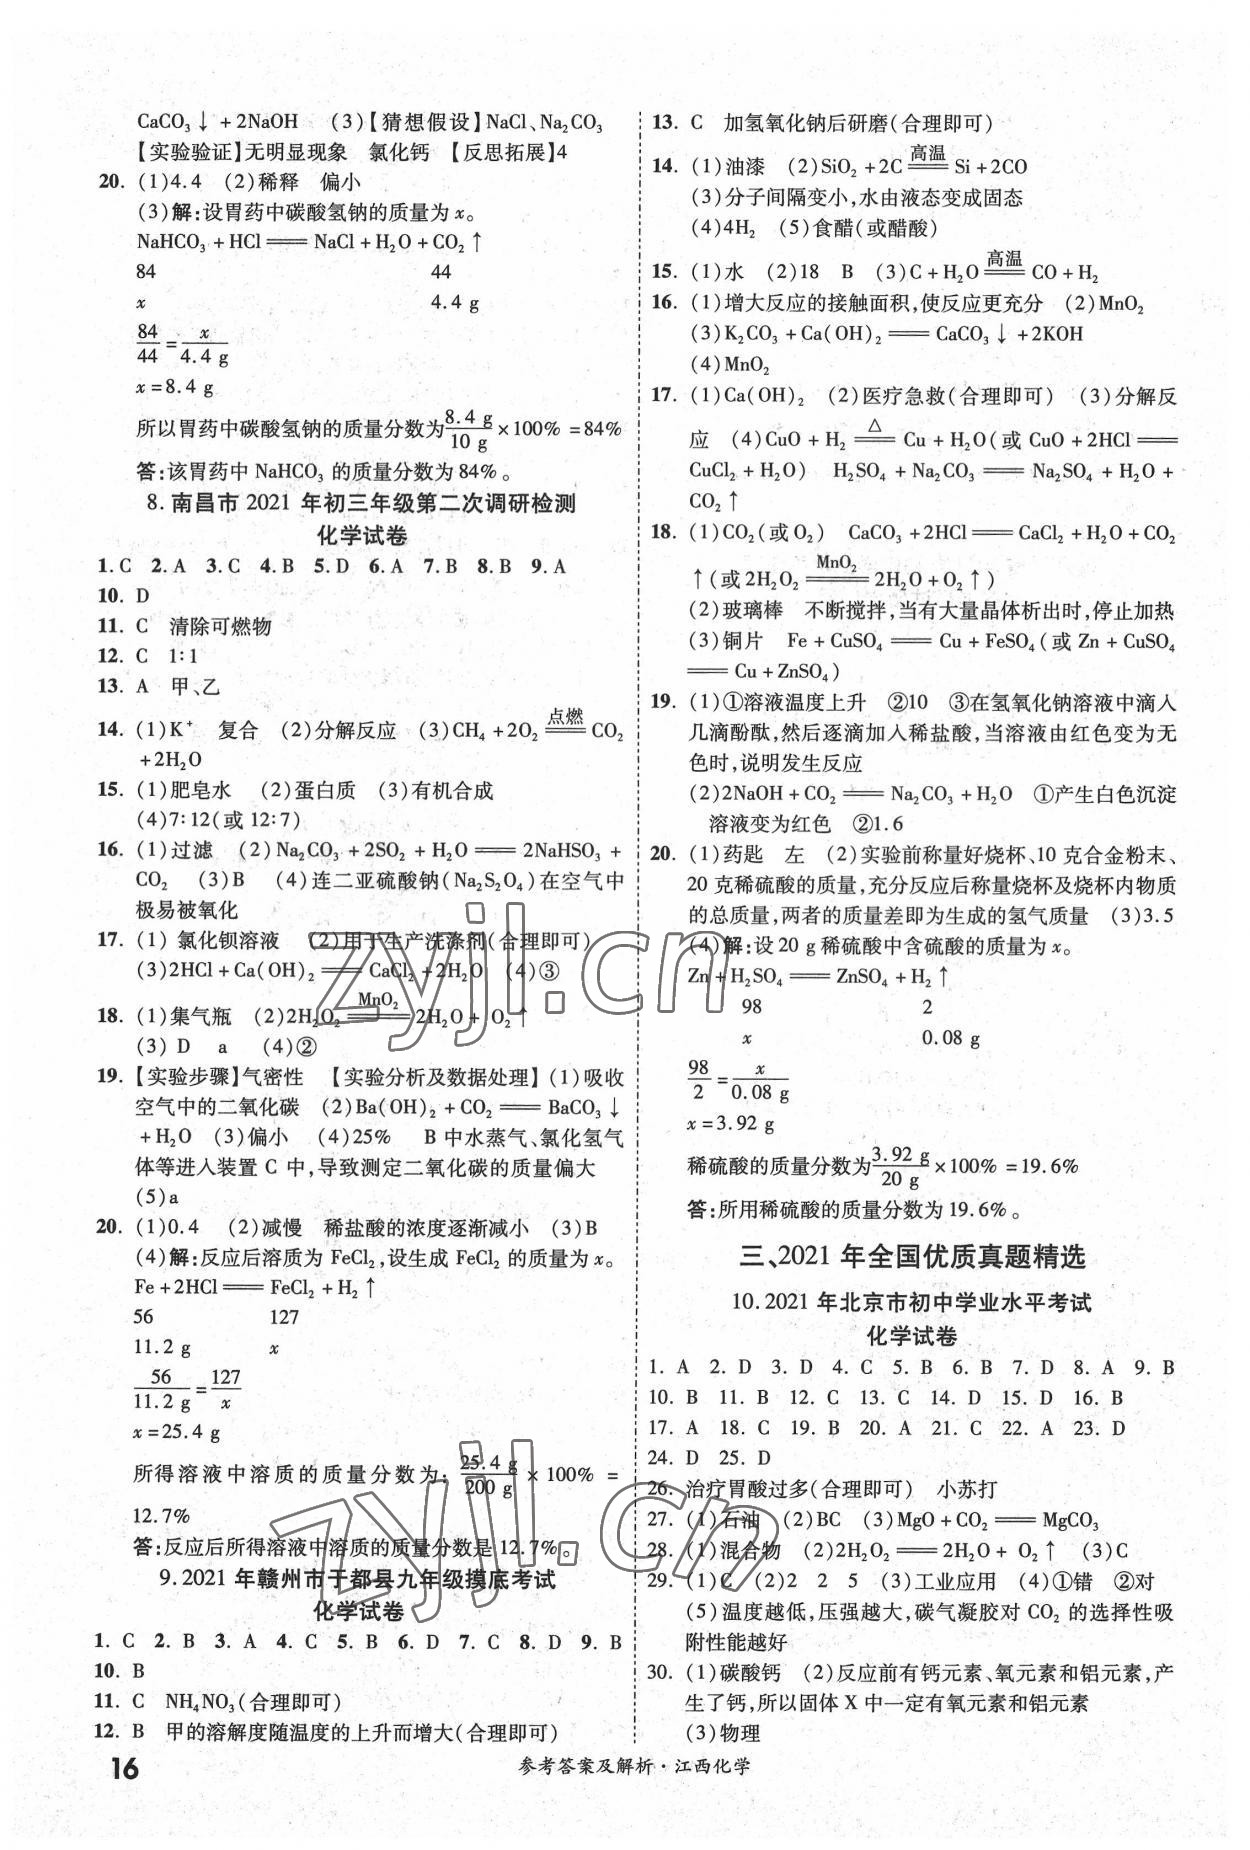 CaCO₃↓+2NaOH (3)【猜想假设】NaCl、Na₂CO₃
【实验验证】无明显现象 氯化钙 【反思拓展】4
20. (1)4.4 (2)稀释 偏小
(3)解:设胃药中碳酸氢钠的质量为x。
NaHCO₃+HCl══NaCl+H₂O+CO₂↑
84 44
x 4.4 g
84/44=x/4.4 g
x=8.4 g
所以胃药中碳酸氢钠的质量分数为8.4 g/10 g×100%=84%
答:该胃药中NaHCO₃的质量分数为84%。
8.南昌市2021年初三年级第二次调研检测
化学试卷
1.C 2.A 3.C 4.B 5.D 6.A 7.B 8.B 9.A
10. D
11. C 清除可燃物
12. C 1∶1
13. A 甲、乙
14. (1)K⁺ 复合 (2)分解反应 (3)CH₄+2O₂ 点燃══ CO₂
+2H₂O
15. (1)肥皂水 (2)蛋白质 (3)有机合成
(4)7∶12(或12∶7)
16. (1)过滤 (2)Na₂CO₃+2SO₂+H₂O══2NaHSO₃+
CO₂ (3)B (4)连二亚硫酸钠(Na₂S₂O₄)在空气中
极易被氧化
17. (1)氯化钡溶液 (2)用于生产洗涤剂(合理即可)
(3)2HCl+Ca(OH)₂══CaCl₂+2H₂O (4)③
18. (1)集气瓶 (2)2H₂O₂ MnO₂══ 2H₂O+O₂↑
(3) D a (4)②
19.【实验步骤】气密性 【实验分析及数据处理】(1)吸收
空气中的二氧化碳 (2)Ba(OH)₂+CO₂══BaCO₃↓
+H₂O (3)偏小 (4)25% B中水蒸气、氯化氢气
体等进入装置C中,导致测定二氧化碳的质量偏大
(5)a
20. (1)0.4 (2)减慢 稀盐酸的浓度逐渐减小 (3)B
(4)解:反应后溶质为FeCl₂,设生成FeCl₂的质量为x。
Fe+2HCl══FeCl₂+H₂↑
56 127
11.2 g x
56/11.2 g=127/x
x=25.4 g
所得溶液中溶质的质量分数为:25.4 g/200 g×100%=
12.7%
答:反应后所得溶液中溶质的质量分数是12.7%。
9.2021年赣州市于都县九年级摸底考试
化学试卷
1. C 2. B 3. A 4. C 5. B 6. D 7. C 8. D 9. B
10. B
11. C NH₄NO₃(合理即可)
12. B 甲的溶解度随温度的上升而增大(合理即可)
13. C 加氢氧化钠后研磨(合理即可)
14. (1)油漆 (2)SiO₂+2C 高温══ Si+2CO
(3)分子间隔变小,水由液态变成固态
(4)4H₂ (5)食醋(或醋酸)
15. (1)水 (2)18 B (3)C+H₂O 高温══ CO+H₂
16. (1)增大反应的接触面积,使反应更充分 (2)MnO₂
(3)K₂CO₃+Ca(OH)₂══CaCO₃↓+2KOH
(4)MnO₂
17. (1)Ca(OH)₂ (2)医疗急救(合理即可) (3)分解反
应 (4)CuO+H₂ △══ Cu+H₂O(或CuO+2HCl══
CuCl₂+H₂O) H₂SO₄+Na₂CO₃══Na₂SO₄+H₂O+
CO₂↑
18. (1)CO₂(或O₂) CaCO₃+2HCl══CaCl₂+H₂O+CO₂
↑(或2H₂O₂ MnO₂══ 2H₂O+O₂↑)
(2)玻璃棒 不断搅拌,当有大量晶体析出时,停止加热
(3)铜片 Fe+CuSO₄══Cu+FeSO₄(或Zn+CuSO₄
══Cu+ZnSO₄)
19. (1)①溶液温度上升 ②10 ③在氢氧化钠溶液中滴入
几滴酚酞,然后逐滴加入稀盐酸,当溶液由红色变为无
色时,说明发生反应
(2)2NaOH+CO₂══Na₂CO₃+H₂O ①产生白色沉淀
溶液变为红色 ②1.6
20. (1)药匙 左 (2)实验前称量好烧杯、10克合金粉末、
20克稀硫酸的质量,充分反应后称量烧杯及烧杯内物质
的总质量,两者的质量差即为生成的氢气质量 (3)3.5
(4)解:设20 g稀硫酸中含硫酸的质量为x。
Zn+H₂SO₄══ZnSO₄+H₂↑
98 2
x 0.08 g
98/2=x/0.08 g
x=3.92 g
稀硫酸的质量分数为3.92 g/20 g×100%=19.6%
答:所用稀硫酸的质量分数为19.6%。
三、2021年全国优质真题精选
10.2021年北京市初中学业水平考试
化学试卷
1. A 2. D 3. D 4. C 5. B 6. B 7. D 8. A 9. B
10. B 11. B 12. C 13. C 14. D 15. D 16. B
17. A 18. C 19. B 20. A 21. C 22. A 23. D
24. D 25. D
26. 治疗胃酸过多(合理即可) 小苏打
27. (1)石油 (2)BC (3)MgO+CO₂══MgCO₃
28. (1)混合物 (2)2H₂O₂══2H₂O+O₂↑ (3)C
29. (1)C (2)2 2 5 (3)工业应用 (4)①错 ②对
(5)温度越低,压强越大,碳气凝胶对CO₂的选择性吸
附性能越好
30. (1)碳酸钙 (2)反应前有钙元素、氧元素和铝元素,产
生了钙,所以固体X中一定有氧元素和铝元素
(3)物理
16
参考答案及解析·江西化学
zyjl.cn
zyjl.cn